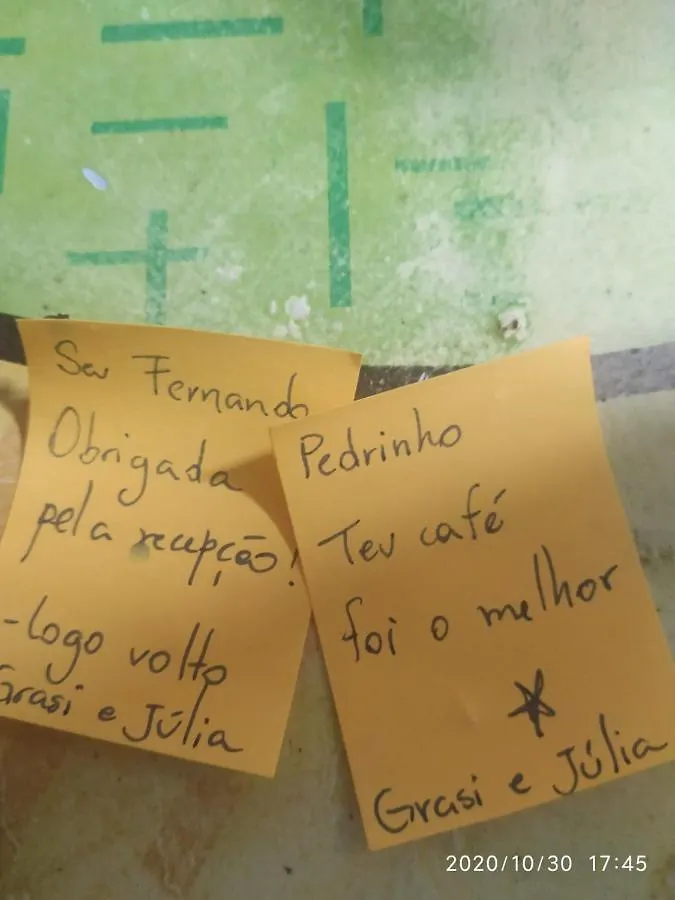 Seu Fernando
Obrigada
pela recepção!
-logo volto
Grasi e Júlia
Pedrinho
Teu café
foi o melhor
Grasi e Júlia
2020/10/30 17:45